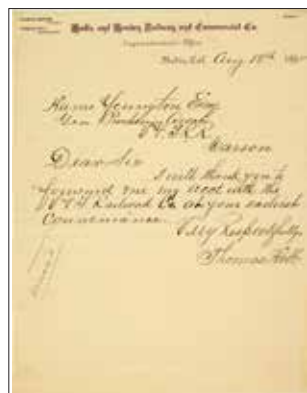 Bodie and Benton Railway and Commercial Co.
Superintendent's Office
Bodie, Cal. Aug 18th 189
Hume Yerington Esq
Gen Purchasing Agent
V & T. R R
Carson
Dear Sir
I will thank you to
forward me my acct with the
V & T Railroad Co at your earliest
Convenience.
Very Respectfully,
Thomas